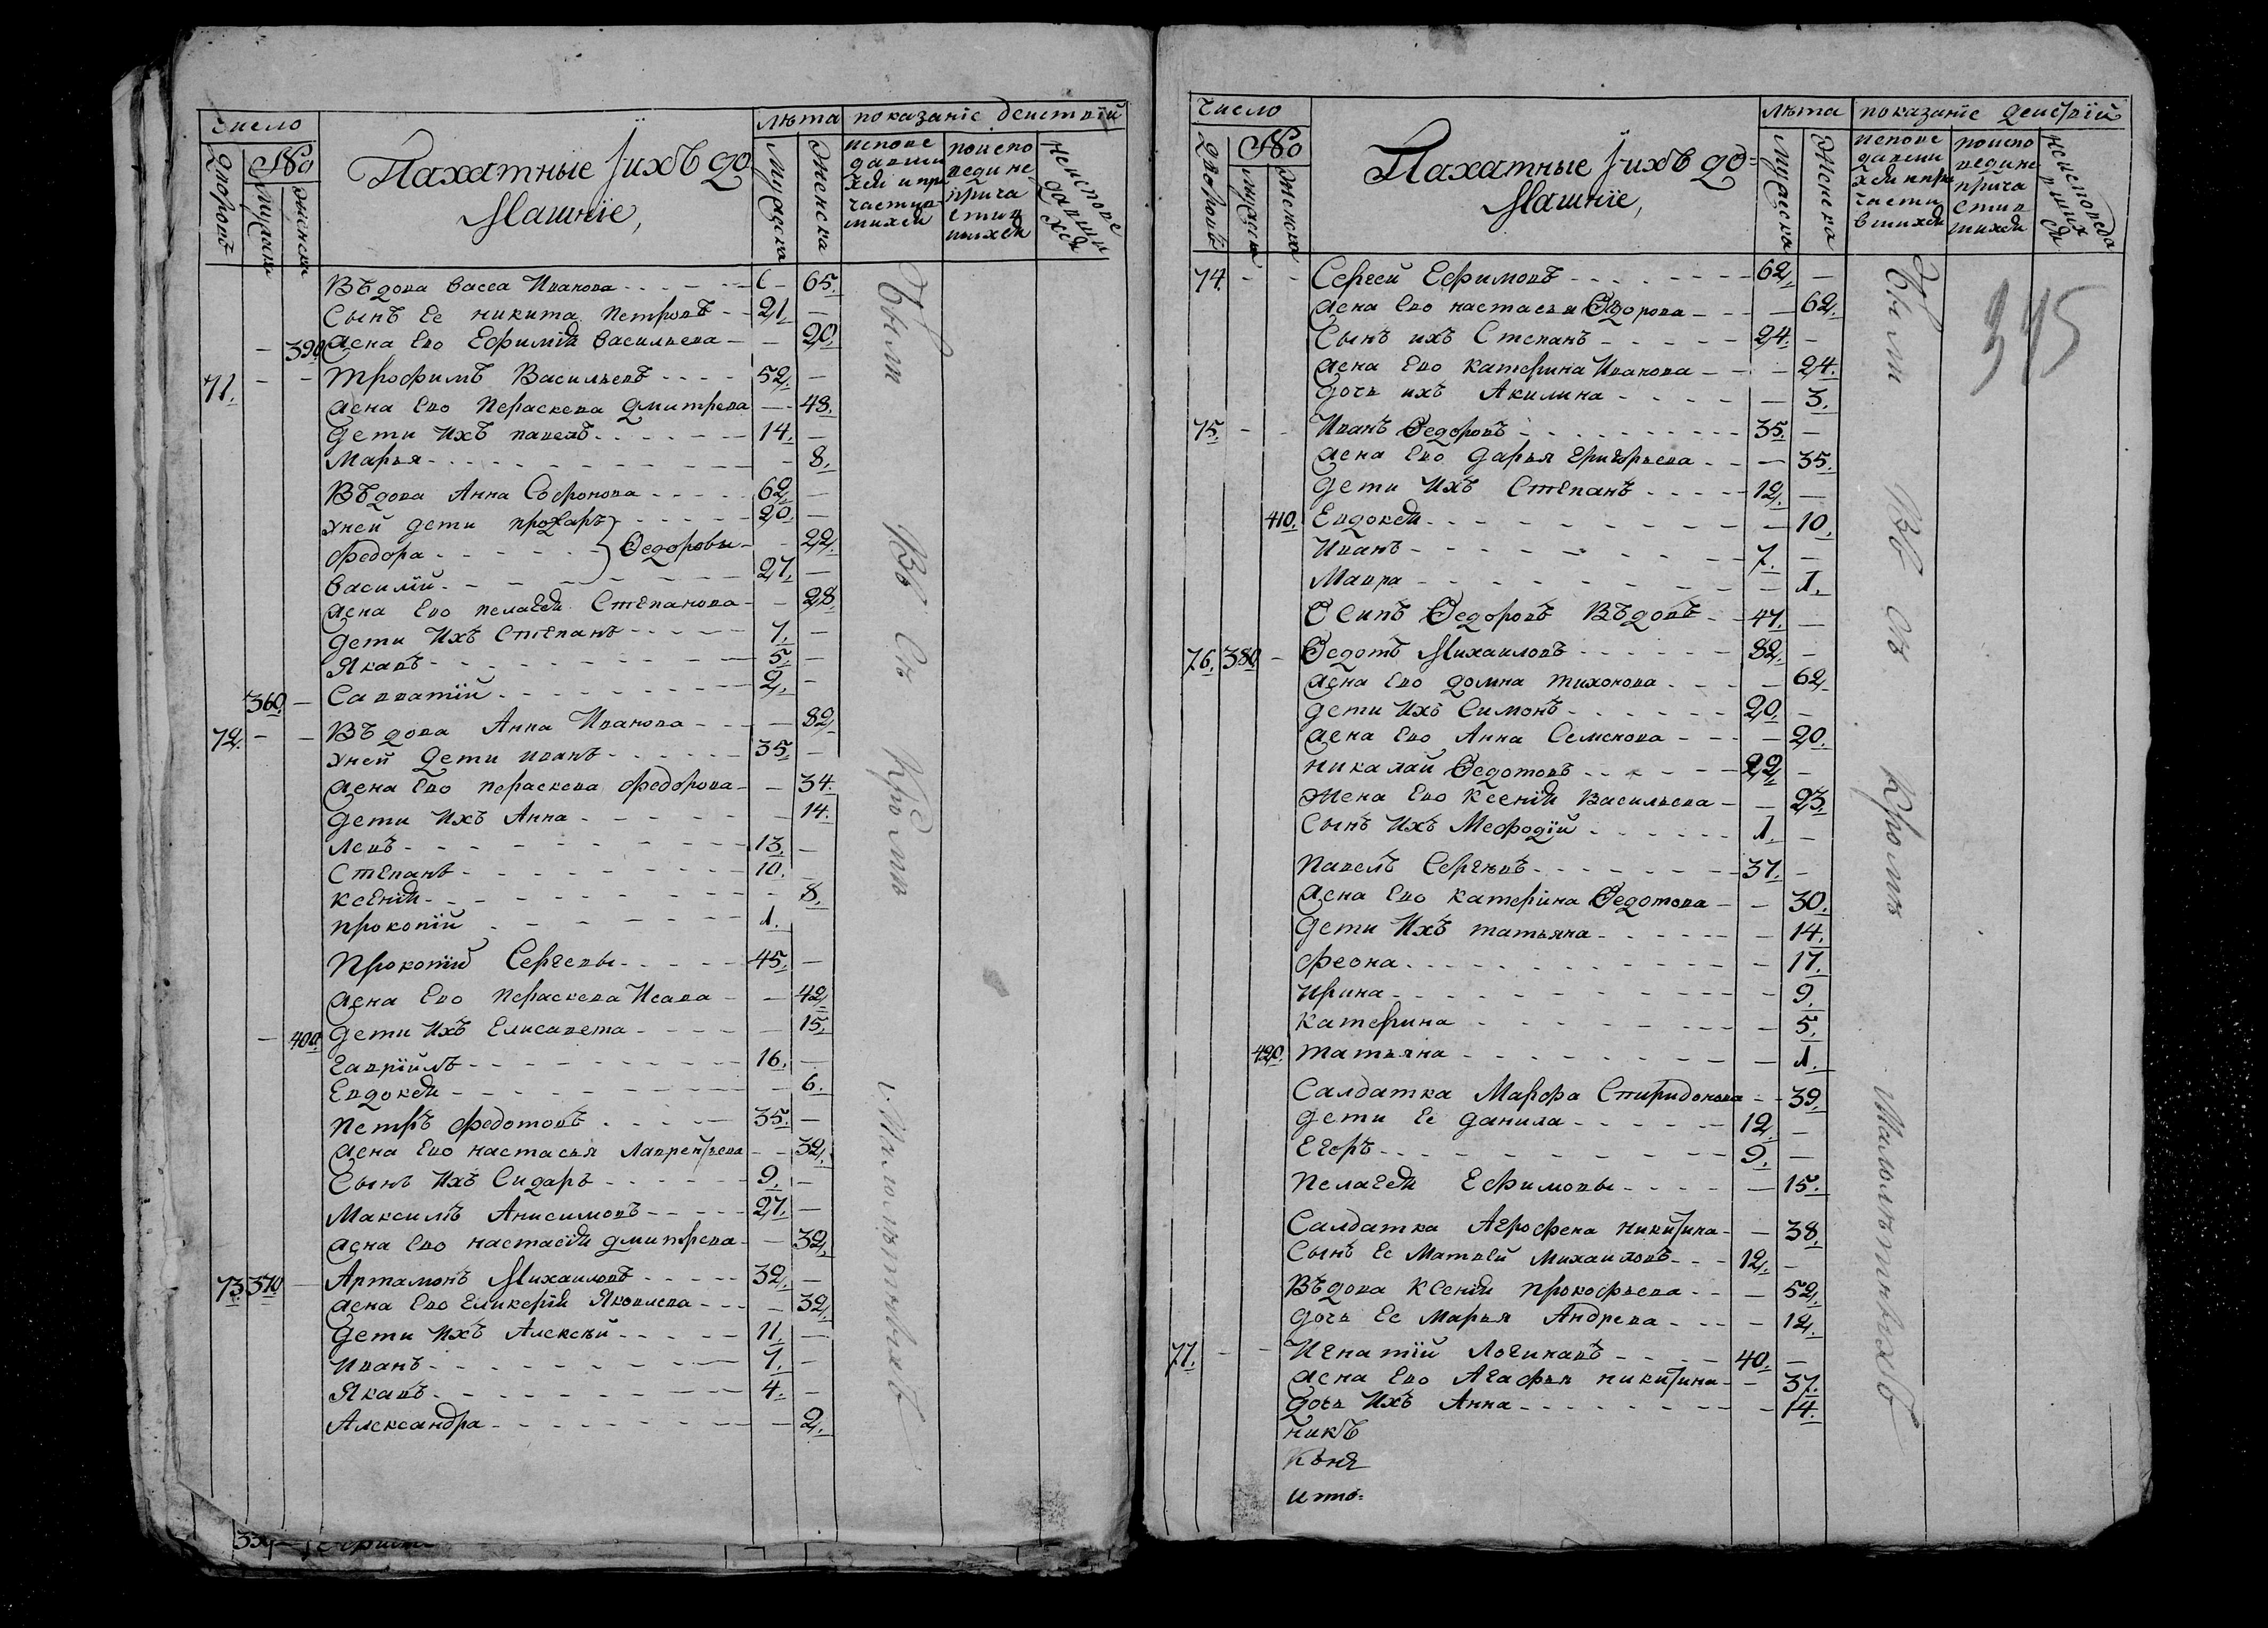 число
дворовъ
No
мужска
женска
Пахатные ихъ до
машнїе,
лѣта
мужска
женска
показанїе деиствїй
испове
давши
хся и при
частив
шихся
поиспо
веди не
прича
стив
шихся
неиспове
давши
хся
Въдова васса Иванова 6 65.
Сынъ Ее никита Петровъ 21.
390. жена Ево Ефимїя васильева 20.
71. Трофимъ Васильевъ 52.
жена Ево Пераскева дмитрева 48.
дети Ихъ павелъ 14.
Марья 8.
Въдова Анна Софронова 62.
Уней дети прохаръ 20.
Федора Ѳедоровы 22.
василїй 27.
жена Ево пелагея Степанова 28.
дети Ихъ Степанъ 7.
Яковъ 5.
360. Савватїй 2.
72. Въдова Анна Иванова 82.
Уней дети иванъ 35.
жена Ево пераскева Федорова 34.
дети Ихъ Анна 14.
Левъ 13.
Степанъ 10.
Ксенїя 8.
прокопїй 1.
Прокопїй Сергевы 45.
жена Ево пераскева Исава 42.
400. дети Ихъ Елисавета 15.
гаврїилъ 16.
Евдокея 6.
Петръ Федотовъ 35.
жена Ево настасья Лаврентьева 32.
Сынъ Ихъ Сидаръ 9.
Максимъ Анисимовъ 27.
жена Ево настасїя дмитрева 32.
73. 370 Артамонъ Михаиловъ 32.
жена Ево Гликерїя Яковлева 32.
дети Ихъ Алексѣй 11.
Иванъ 7.
Яковъ 4.
Александра 2.
Были Въ Съ Кромѣ Малолѣтныхъ
число
дворовъ
No
мужска
женска
Пахатные ихъ до=
машнїе,
лѣта
мужска
женска
показанїе деиствїй
испове
давши
хся и при
части
вшихся
поиспо
веди не
прича
стив
шихся
неисповеда
вших
ся
345
74. Сергей Ефимовъ 62.
жена Ево настасья Ѳедорова 62.
Сынъ ихъ Степанъ 24.
жена Ево Катерина Иванова 24.
дочь ихъ Акилина 3.
75. Иванъ Ѳедоровъ 35.
жена Ево дарья григорьева 35.
дети Ихъ Степанъ 12.
410. Евдокея 10.
Иванъ 7.
Мавра 1.
Осипъ Ѳедоровъ Въдовъ 47.
76. 380. Ѳедотъ Михаиловъ 82.
жена Ево домна тихонова 62.
дети Ихъ Симонъ 20.
жена Ево Анна Семенова 20.
николай Ѳедотовъ 22.
Жена Ево Ксенїя Васильева 23.
Сынъ Ихъ Мефодїй 1.
Павелъ Сергѣевъ 37.
жена Ево Катерина Ѳедотова 30.
дети Ихъ татьяна 14.
Феона 17.
Ирина 9.
Катерина 5.
420. татьяна 1.
Салдатка Марфа Спиридонова 39.
дети Ее данила 12.
Егоръ 9.
Пелагея Ефимовы 15.
Салдатка Агрофена никитина 38.
Сынъ Ее Матвей Михаиловъ 12.
Въдова Ксенїя прокофьева 52.
дочь Ее Марья Андрева 12.
77. Игнатїй Логиновъ 40.
жена Ево Агафья никитина 37.
дочь Ихъ Анна 14.
Были Въ Съ Кромѣ Малолѣтныхъ